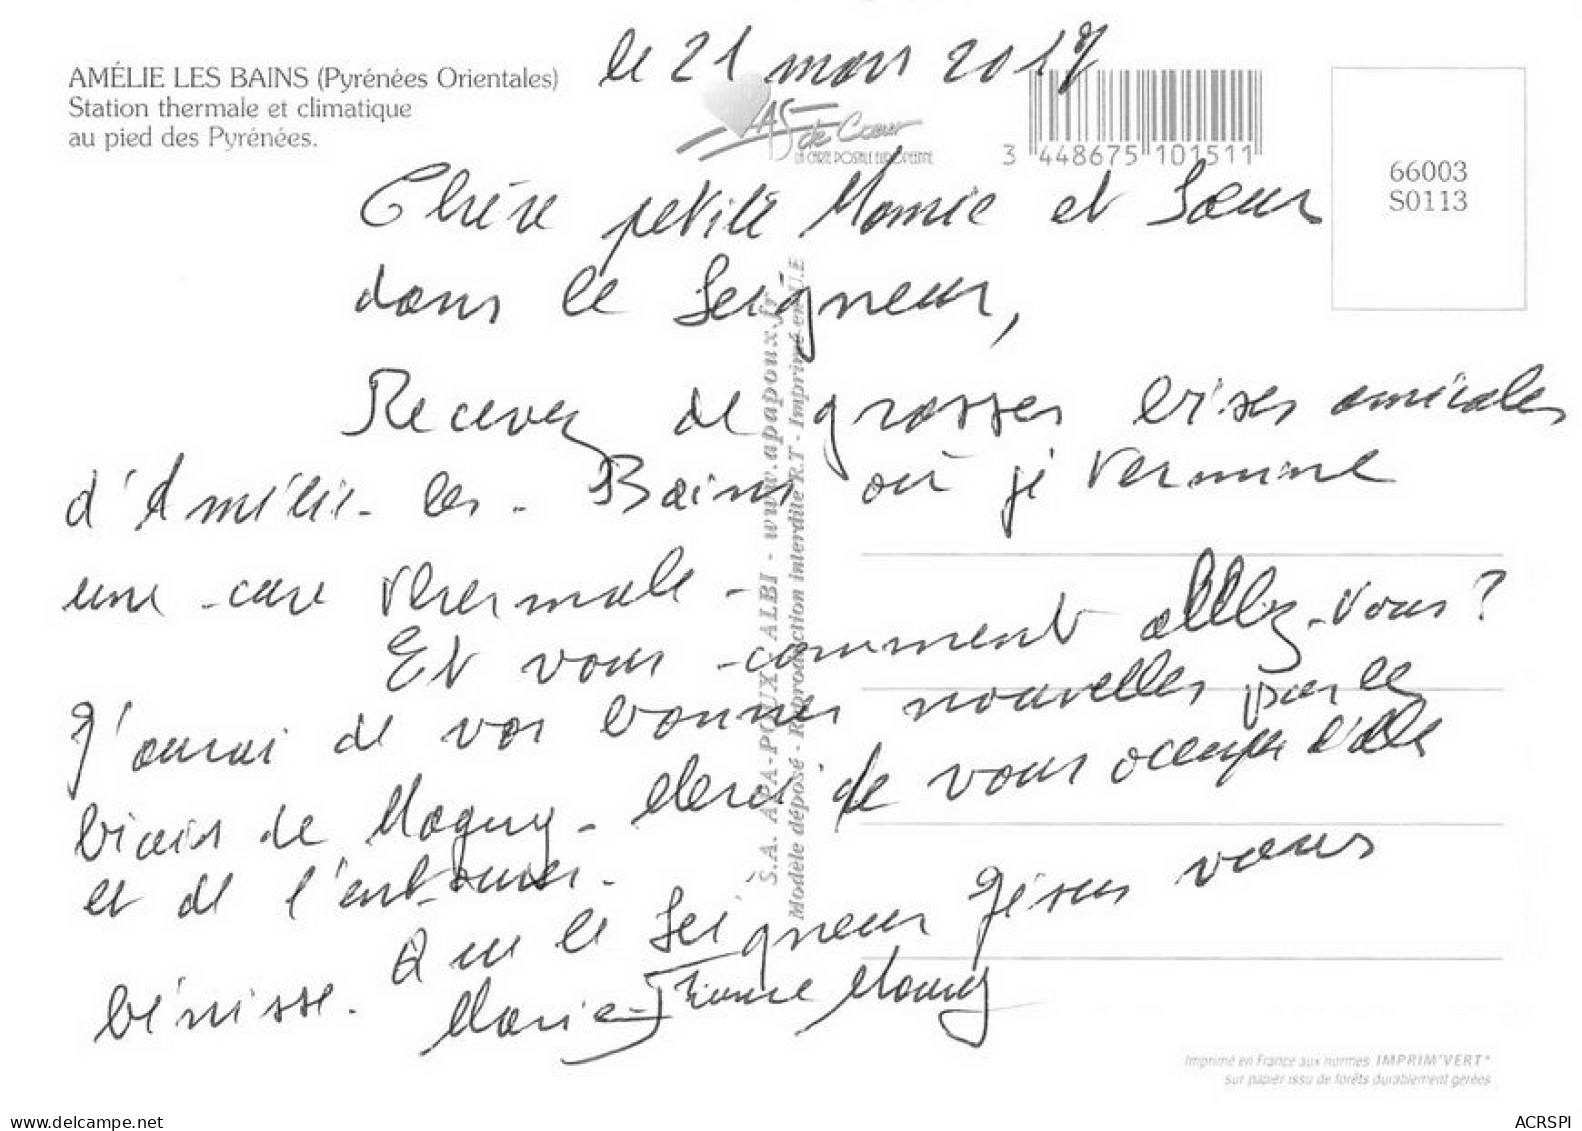 le 21 mars 2017
AMÉLIE LES BAINS (Pyrénées Orientales)
Station thermale et climatique
au pied des Pyrénées.
AS de Cœur
LA CARTE POSTALE EUROPÉENNE
3 448675 101511
66003
S0113
Chère petite Mamie et Sœur
dans le Seigneur,
Recevez de grosses bises amicales
d'Amélie-les-Bains où je termine
une cure thermale -
Et vous comment allez-vous ?
J'aurai de vos bonnes nouvelles par le
biais de Maguy - Merci de vous occuper d'elle
et de l'entourer.
Que le Seigneur Jésus vous
bénisse. Marie-France Maury
S.A. APA-POUX - ALBI - www.apapoux.fr
Modèle déposé - Reproduction interdite R.T - Imprimé en U.E
Imprimé en France aux normes IMPRIM'VERT®
sur papier issu de forêts durablement gérées
https://www.delcampe.net
ACRSPI